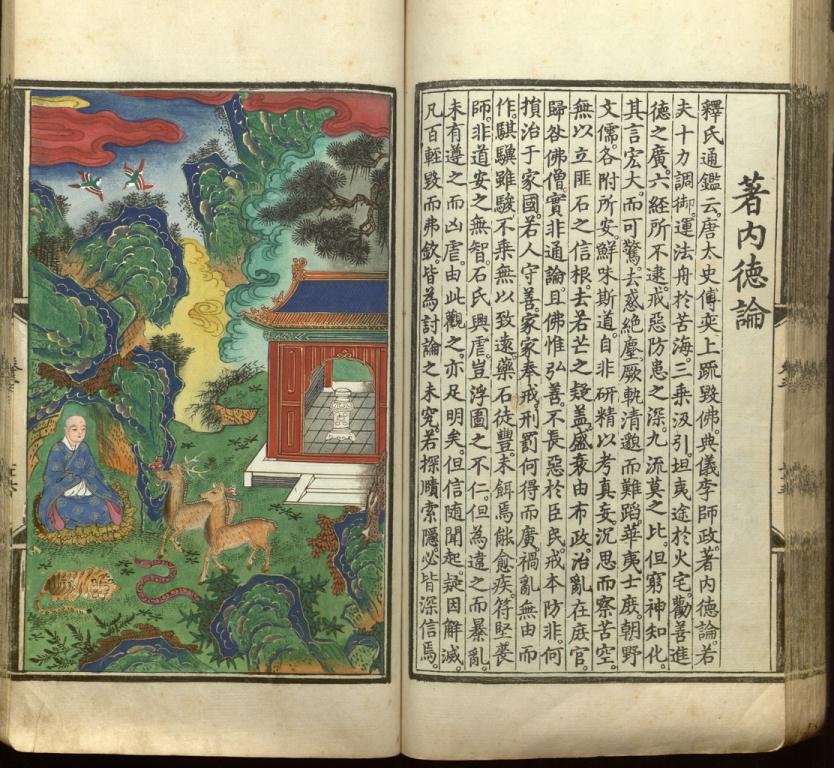 著内德論
釋氏通鑑云。唐太史傅奕上疏毀佛。典儀李師政。著内德論。若
夫十力調御。運法舟於苦海。三乘汲引。坦夷途於火宅。勸善進
德之廣。六經所不逮。戒惡防患之深。九流莫之比。但窮神知化。
其言宏大。而可驚。去惑絕塵。厥軌清邈而難蹈。華夷士庶。朝野
文儒。各附所安。鮮味斯道。自非研精以考真妄。沉思而察苦空。
無以立匪石之信根。去若芒之疑蓋。盛衰由布政。治亂在庶官。
歸咎佛僧。實非通論。且佛惟弘善。不長惡於臣民。戒本防非。何
損治于家國。若人守善。家家奉戒。刑罰何得而廣。禍亂無由而
作。騏驥雖駿。不乘無以致遠。藥石徒豐。未餌焉能愈疾。符堅喪
師。非道安之無智。石氏興虐。豈浮圖之不仁。但為違之而暴亂。
未有遵之而凶虐。由此觀之。亦足明矣。但信隨聞起。疑因解滅。
凡百輕毀而弗欽。皆為討論之未究。若探賾索隱。必皆深信焉。